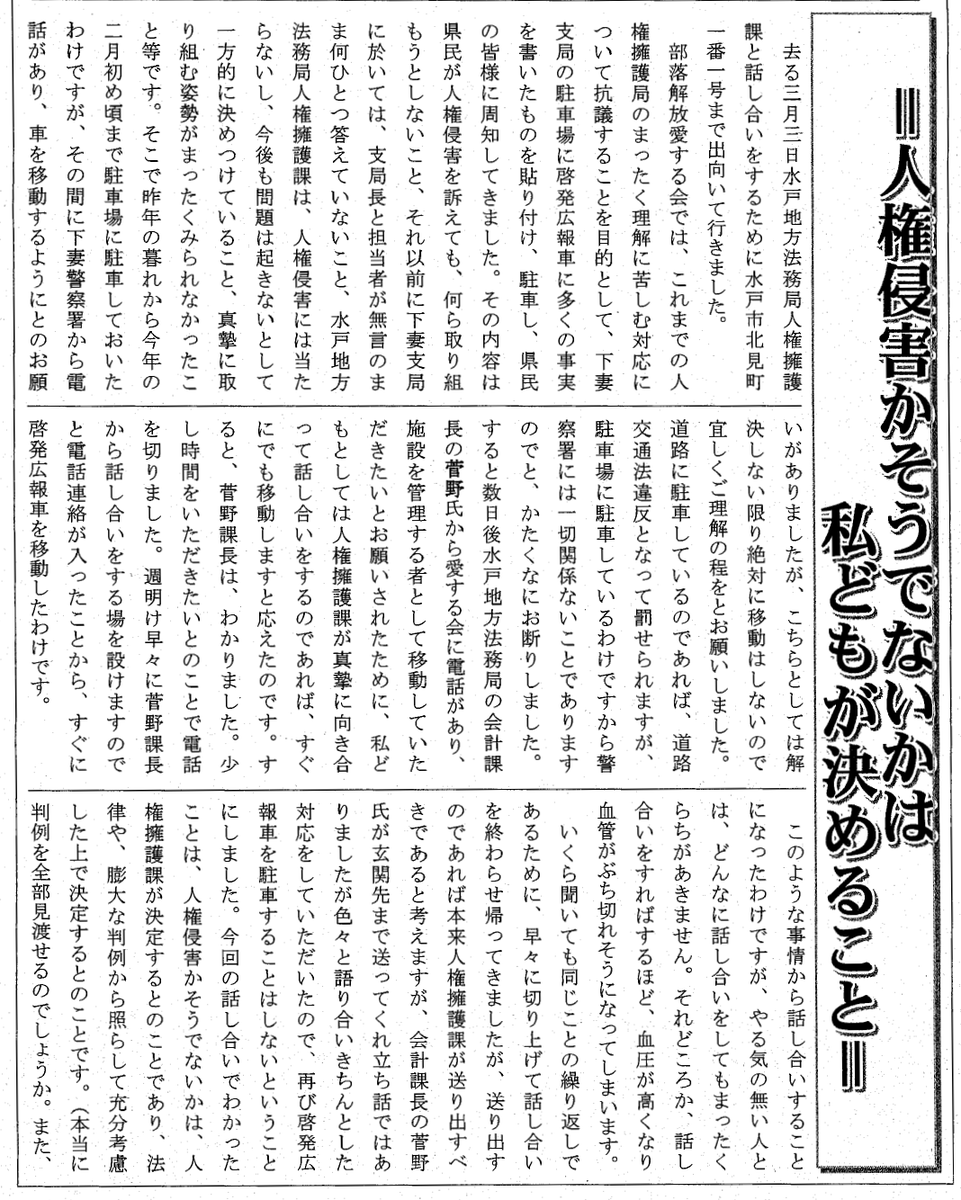 ＝人権侵害かそうでないかは
私どもが決めること＝
去る三月三日水戸地方法務局人権擁護
課と話し合いをするために水戸市北見町
一番一号まで出向いて行きました。
部落解放愛する会では、これまでの人
権擁護局のまったく理解に苦しむ対応に
ついて抗議することを目的として、下妻
支局の駐車場に啓発広報車に多くの事実
を書いたものを貼り付け、駐車し、県民
の皆様に周知してきました。その内容は
県民が人権侵害を訴えても、何ら取り組
もうとしないこと、それ以前に下妻支局
に於いては、支局長と担当者が無言のま
ま何ひとつ答えていないこと、水戸地方
法務局人権擁護課は、人権侵害には当た
らないし、今後も問題は起きないとして
一方的に決めつけていること、真摯に取
り組む姿勢がまったくみられなかったこ
と等です。そこで昨年の暮れから今年の
二月初め頃まで駐車場に駐車しておいた
わけですが、その間に下妻警察署から電
話があり、車を移動するようにとのお願
いがありましたが、こちらとしては解
決しない限り絶対に移動はしないので
宜しくご理解の程をとお願いしました。
道路に駐車しているのであれば、道路
交通法違反となって罰せられますが、
駐車場に駐車しているわけですから警
察署には一切関係ないことであります
のでと、かたくなにお断りしました。
すると数日後水戸地方法務局の会計課
長の菅野氏から愛する会に電話があり、
施設を管理する者として移動していた
だきたいとお願いされたために、私ど
もとしては人権擁護課が真摯に向き合
って話し合いをするのであれば、すぐ
にでも移動しますと応えたのです。す
ると、菅野課長は、わかりました。少
し時間をいただきたいとのことで電話
を切りました。週明け早々に菅野課長
から話し合いをする場を設けますので
と電話連絡が入ったことから、すぐに
啓発広報車を移動したわけです。
このような事情から話し合いすること
になったわけですが、やる気の無い人と
は、どんなに話し合いをしてもまったく
らちがあきません。それどころか、話し
合いをすればするほど、血圧が高くなり
血管がぶち切れそうになってしまいます。
いくら聞いても同じことの繰り返しで
あるために、早々に切り上げて話し合い
を終わらせ帰ってきましたが、送り出す
のであれば本来人権擁護課が送り出すべ
きであると考えますが、会計課長の菅野
氏が玄関先まで送ってくれ立ち話ではあ
りましたが色々と語り合いきちんとした
対応をしていただいたので、再び啓発広
報車を駐車することはしないということ
にしました。今回の話し合いでわかった
ことは、人権侵害かそうでないかは、人
権擁護課が決定するとのことであり、法
律や、膨大な判例から照らして充分考慮
した上で決定するとのことです。（本当に
判例を全部見渡せるのでしょうか。また、